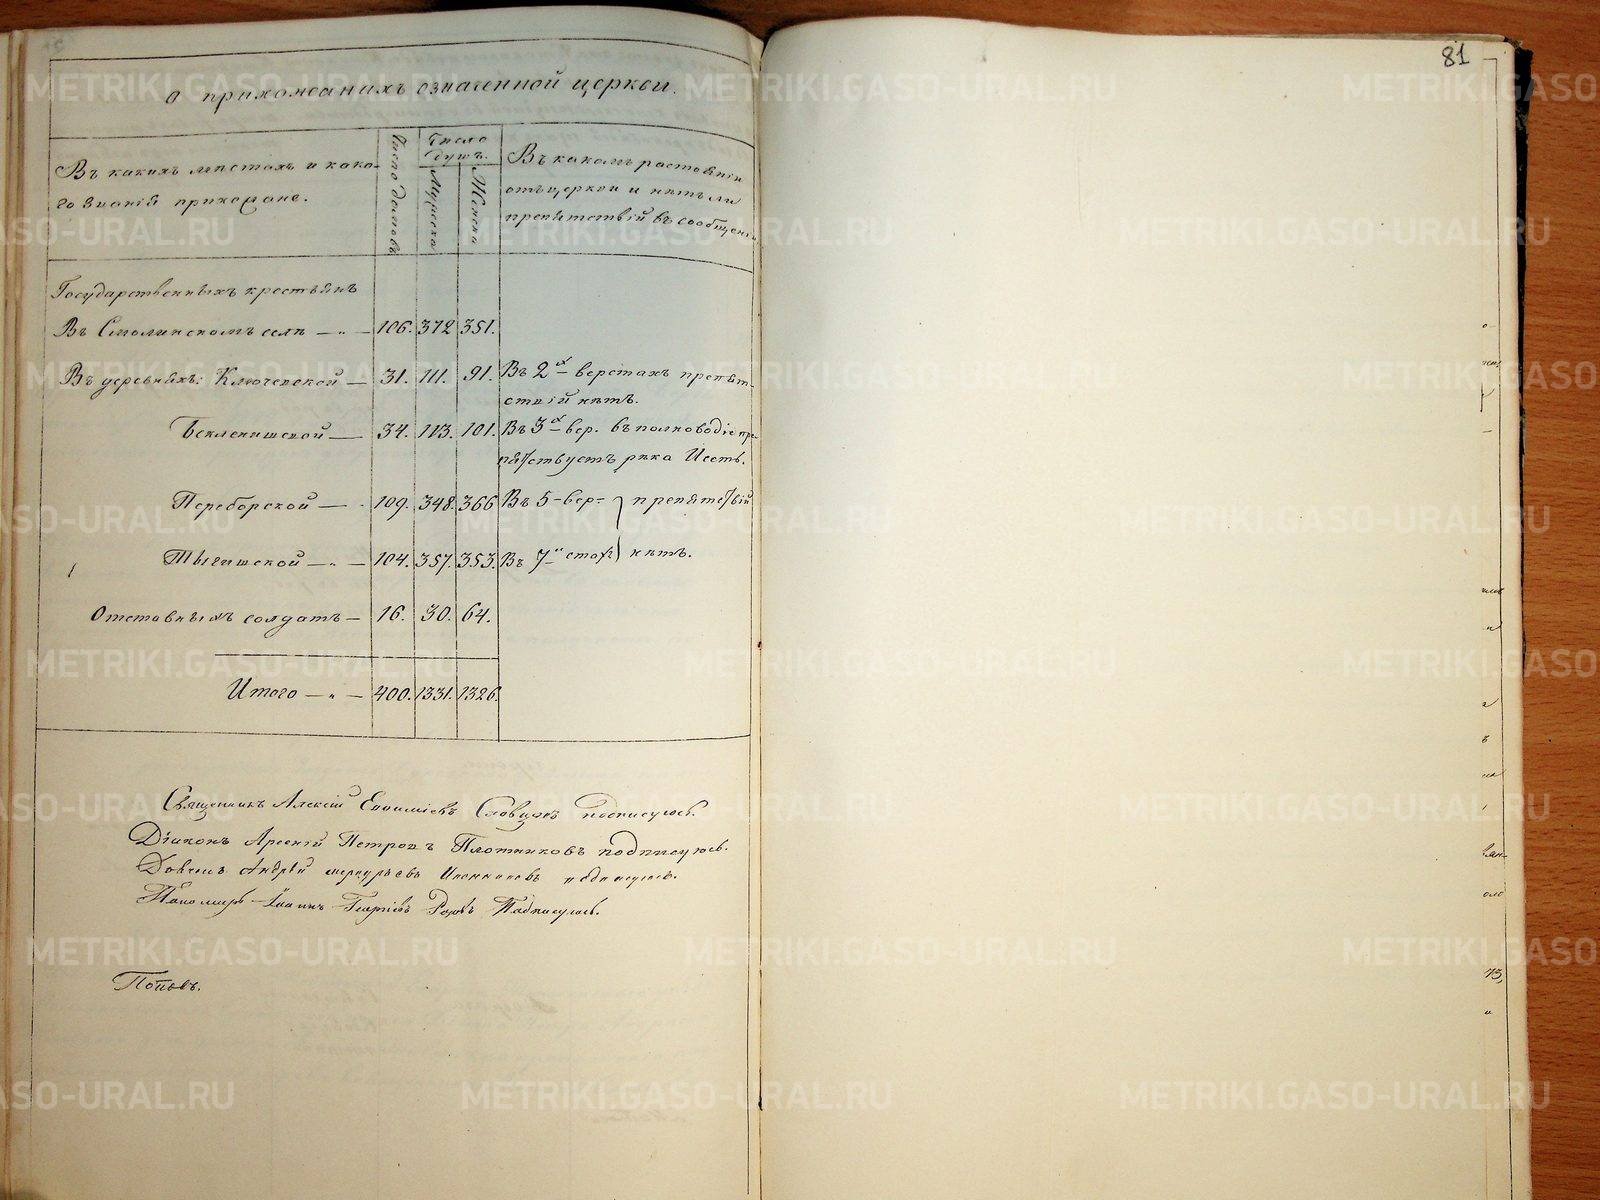 81
О прихожанахъ означенной церкви.
Въ какихъ мѣстахъ и како-
го званія прихожане.
Число домовъ
Число
душъ.
Мужеска
Женска
Въ какомъ растояніи
отъ церкви и нѣтъ ли
препятствій въ сообщеніи
Государственныхъ крестьянъ
Въ Смолинскомъ селѣ — „ — 106. 372 351.
Въ деревняхъ: Ключевской — 31. 111. 91. Въ 2х верстахъ препят-
ствій нѣтъ.
Бекленищевой — 34. 113. 101. Въ 3х вер. въ полноводіе пре-
пятствуетъ рѣка Исеть.
Переборской — 109. 348. 366 Въ 5 вер= препятствій
Тыгишской — „ — 104. 357. 353. Въ 7и стахъ нѣтъ.
Отставныхъ солдатъ — 16. 30. 64.
Итого — „ — 400. 1331. 1326.
Священникъ Алексій Евѳиміевъ Словцовъ подписуюсь.
Діаконъ Арсеній Петровъ Плотниковъ подписуюсь.
Андрей Меркурьевъ подписуюсь.
Пономарь Іоаннъ Георгіевъ Подписуюсь.
Поповъ.
METRIKI.GASO-URAL.RU